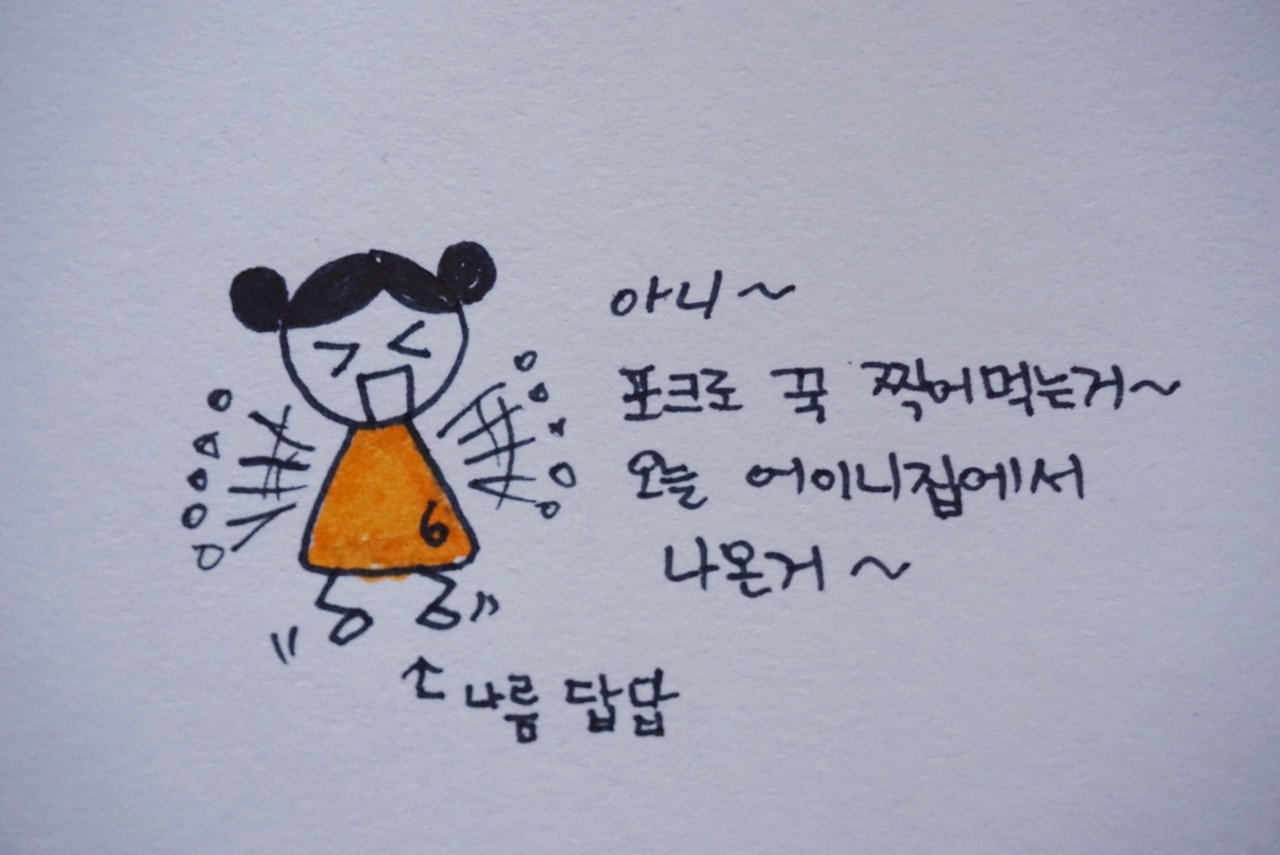 아니~
포크로 꾹 찍어먹는거~
오늘 어이니집에서
나온거~
6
나름 답답